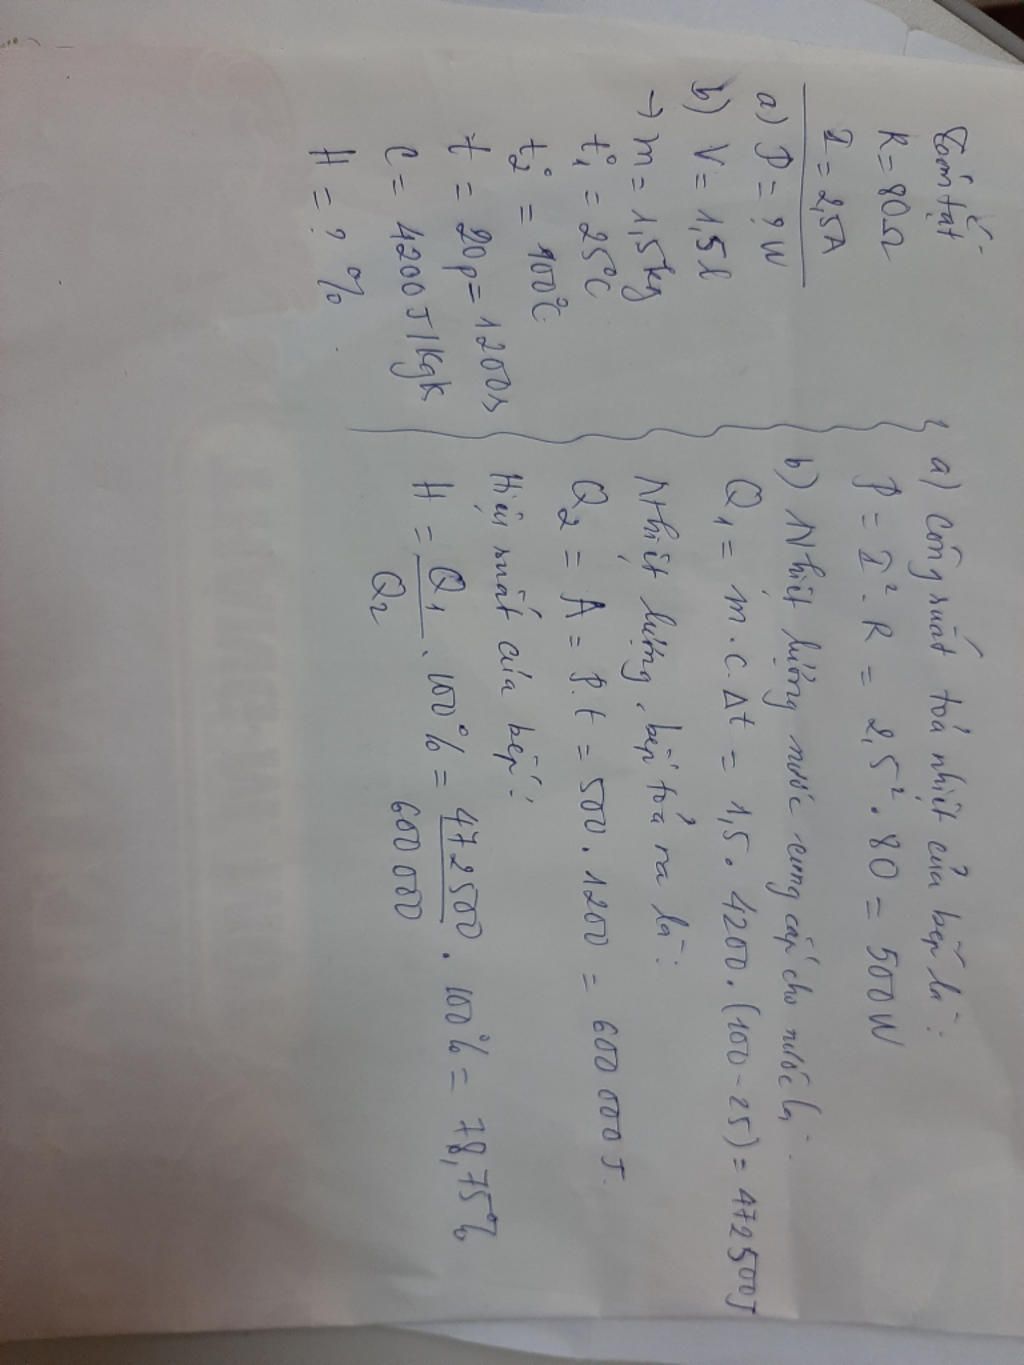 Tóm tắt
R = 80Ω
I = 2,5A
a) P = ? W
b) V = 1,5l
→ m = 1,5kg
t°1 = 25°C
t°2 = 100°C
t = 20p = 1200s
C = 4200J/kgK
H = ? %
a) Công suất toả nhiệt của bếp là:
P = I². R = 2,5². 80 = 500W
b) Nhiệt lượng nước cung cấp cho nước là:
Q1 = m.c.Δt = 1,5. 4200. (100-25) = 472500J
Nhiệt lượng bếp toả ra là:
Q2 = A = P.t = 500. 1200 = 600 000J.
Hiệu suất của bếp:
H = Q1/Q2 . 100% = 472500/600000 . 100% = 78,75%